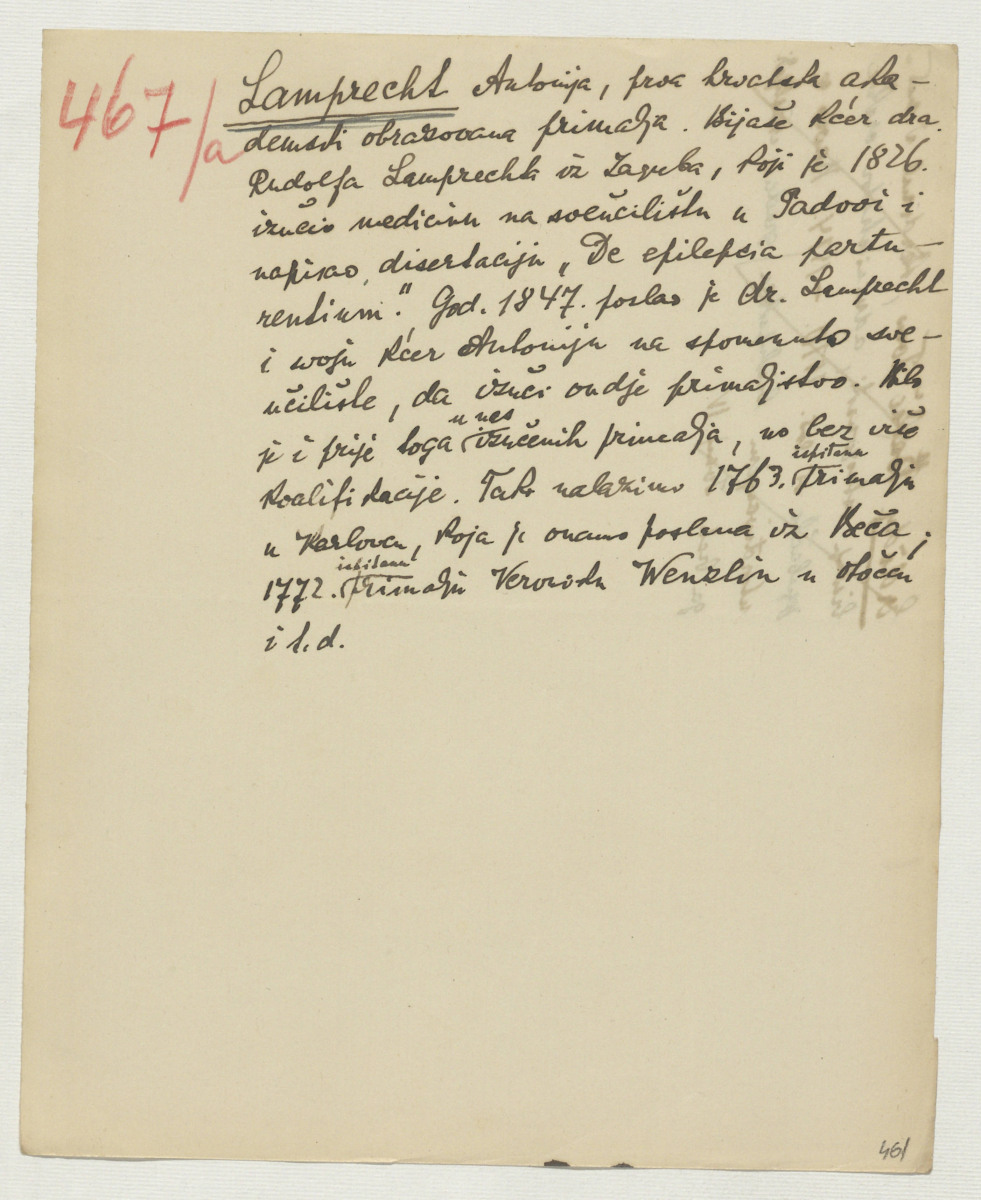 467/a
Lamprecht Antonija, prva hrvatska aka-
demski obrazovana primalja. Bijaše kćer dra.
Rudolfa Lamprechta iz Zagreba, koji je 1826.
izučio medicinu na sveučilištu u Padovi i
napisao disertaciju „De epilepsia partu-
rentium". God. 1847. poslao je dr. Lamprecht
i svoju kćer Antoniju na spomenuto sve-
učilište, da izuči ondje primaljstvo. Bilo
u nas
je i prije toga izučenih primalja, no bez više
ispitanu
kvalifikacije. Tako nalazimo 1763. primalju
u Karlovcu, koja je onamo poslana iz Beča;
ispitanu
1772. primalju Veroniku Wenzlin u Otočcu
i t. d.
461